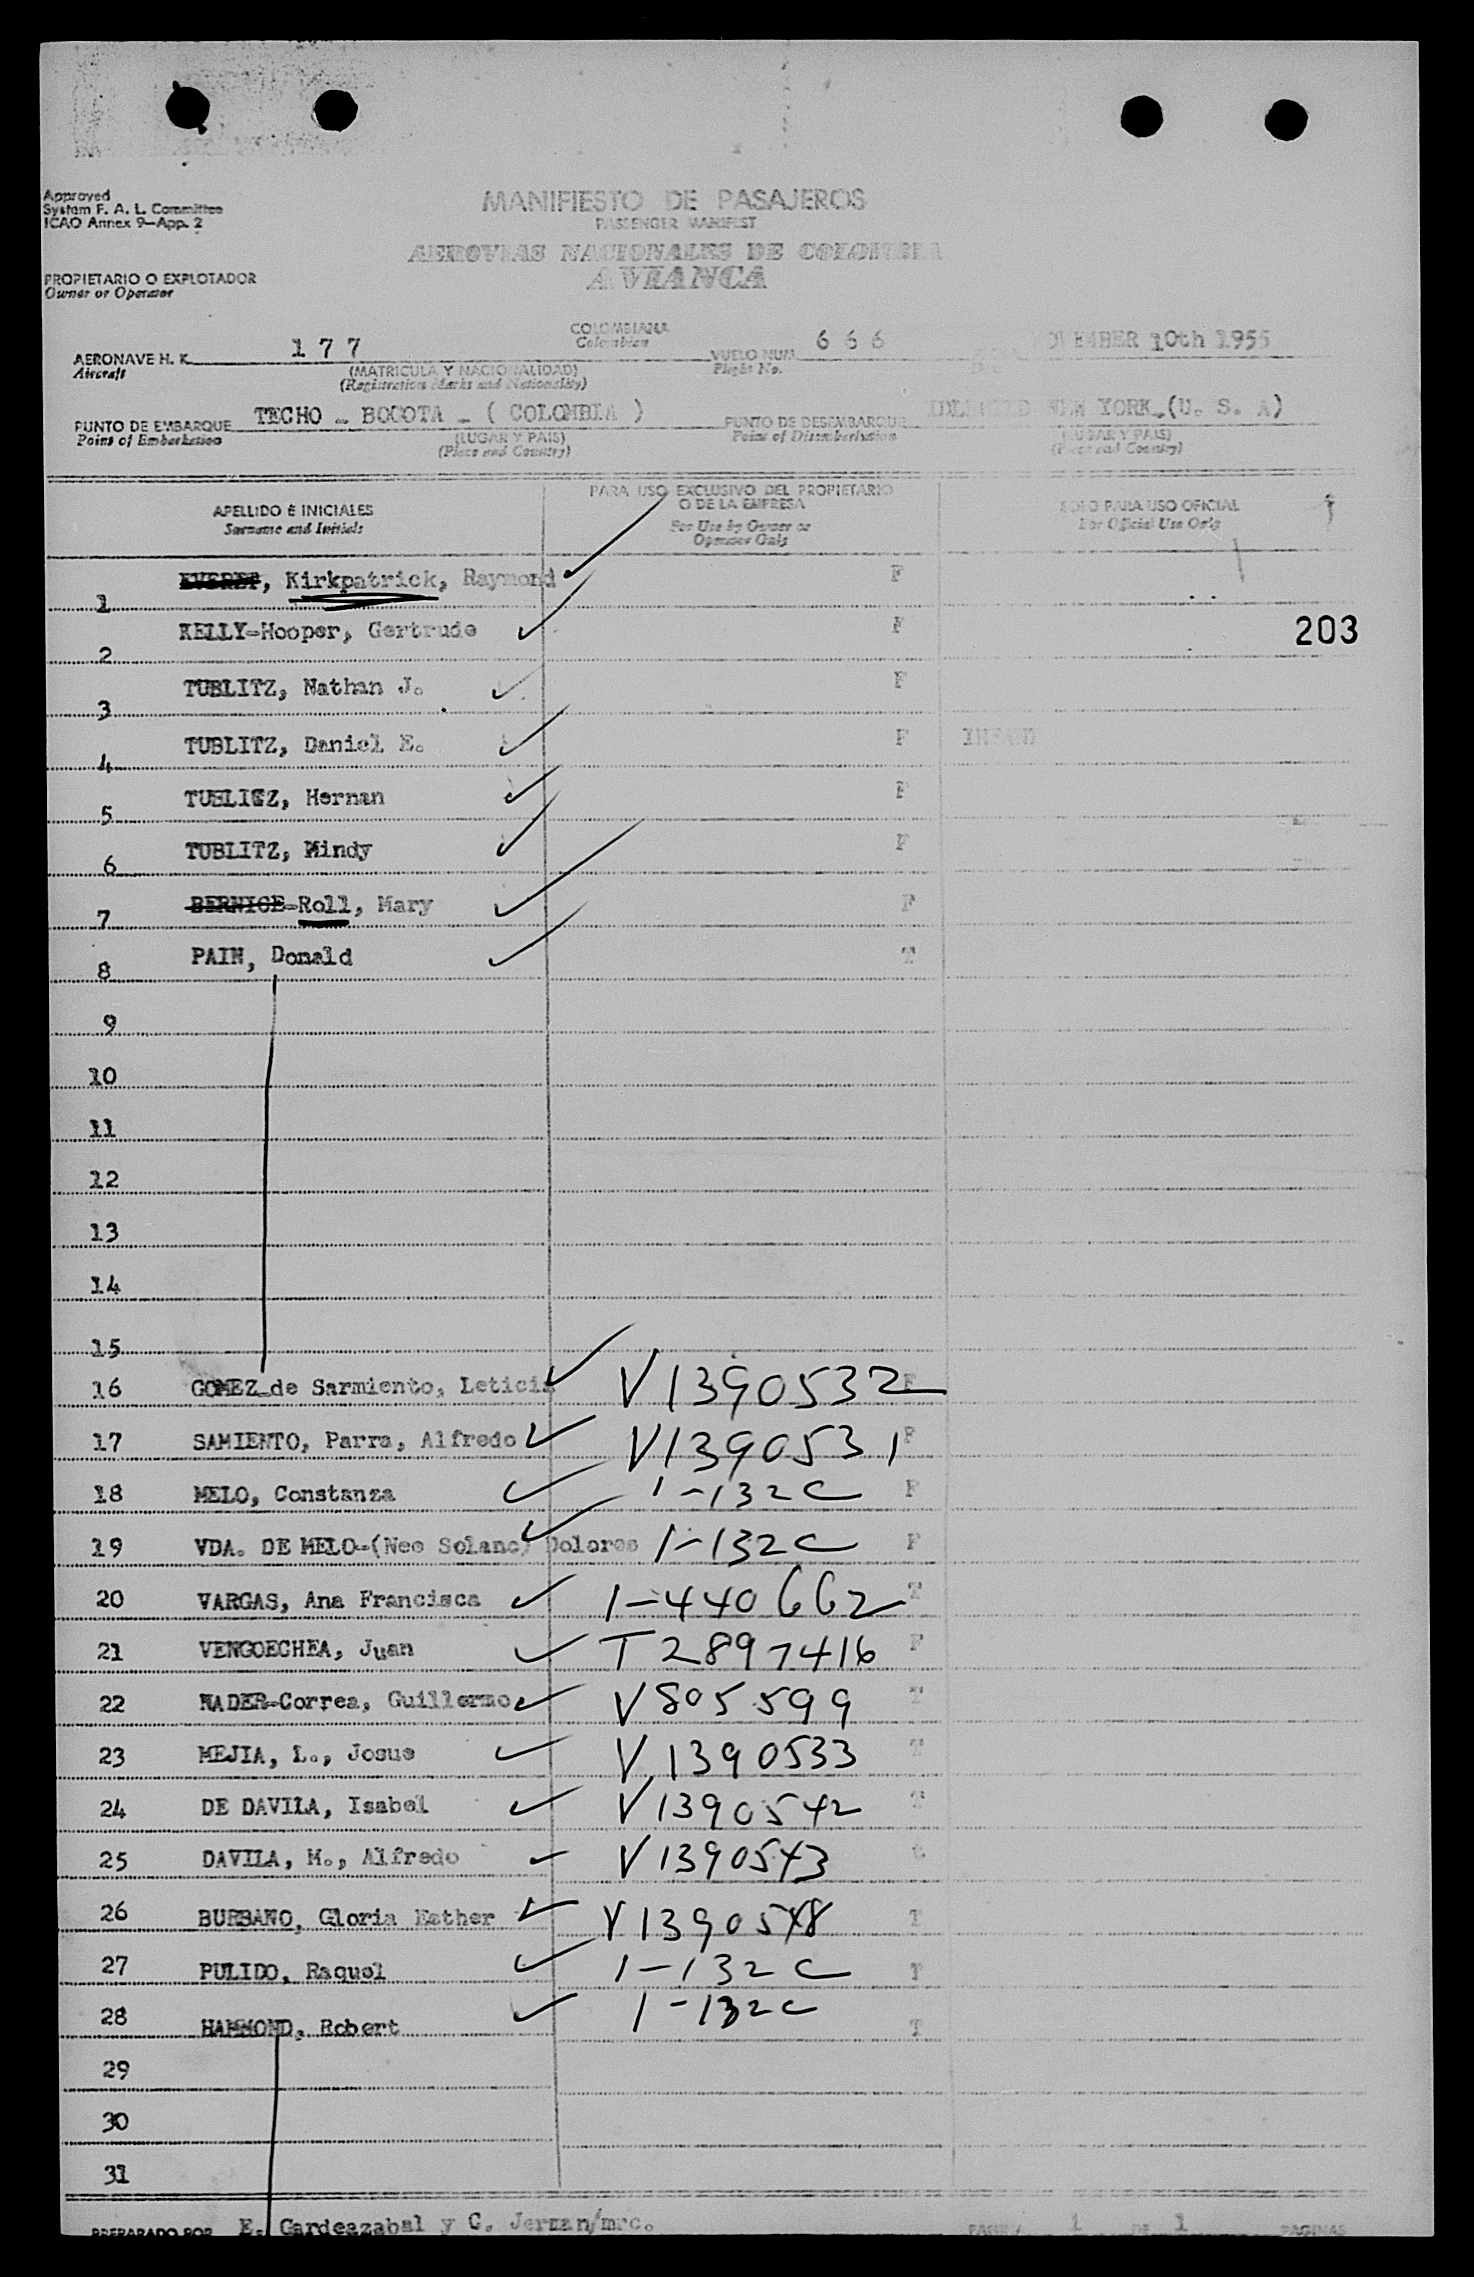 Approved
System F. A. L. Committee
ICAO Annex 9—App. 2
MANIFIESTO DE PASAJEROS
PASSENGER MANIFEST
AEROVIAS NACIONALES DE COLOMBIA
AVIANCA
PROPIETARIO O EXPLOTADOR
Owner or Operator
AERONAVE H. K. 177 COLOMBIANA VUELO NUM. 666 NOVEMBER 10th 1955
Aircraft (MATRICULA Y NACIONALIDAD) Colombian Flight No.
(Registration Marks and Nationality)
PUNTO DE EMBARQUE TECHO - BOGOTA - ( COLOMBIA ) PUNTO DE DESEMBARQUE IDLEWILD NEW YORK-(U. S. A)
Point of Embarkation (LUGAR Y PAIS) Point of Disembarkation (LUGAR Y PAIS)
(Place and Country) (Place and Country)
APELLIDO E INICIALES
Surname and Initials
PARA USO EXCLUSIVO DEL PROPIETARIO
O DE LA EMPRESA
For Use by Owner or
Operator Only
SOLO PARA USO OFICIAL
For Official Use Only
1 , Kirkpatrick, Raymond F
203
2 KELLY-Hooper, Gertrude F
3 TUBLITZ, Nathan J. F
4 TUBLITZ, Daniel E. F INFAND
5 TUBLITZ, Hernan F
6 TUBLITZ, Mindy F
7 BERNICE-Roll, Mary F
8 PAIN, Donald T
9
10
11
12
13
14
15
16 GOMEZ-de Sarmiento, Leticia V1390532 F
17 SAMIENTO, Parra, Alfredo V1390531 F
18 MELO, Constanza 1-132C F
19 VDA. DE MELO-(Nee Solano) Dolores 1-132C F
20 VARGAS, Ana Francisca 1-440662 T
21 VENGOECHEA, Juan T2897416 F
22 NADER-Correa, Guillermo V805599 T
23 MEJIA, L., Josue V1390533 T
24 DE DAVILA, Isabel V1390542 T
25 DAVILA, M., Alfredo V1390543
26 BURBANO, Gloria Esther V1390548 T
27 PULIDO, Raquel 1-132C T
28 HAMMOND, Robert 1-132C T
29
30
31
PREPARADO POR E. Gardeazabal y C. Jerman/mrc. PAGINA 1 DE 1 PAGINAS